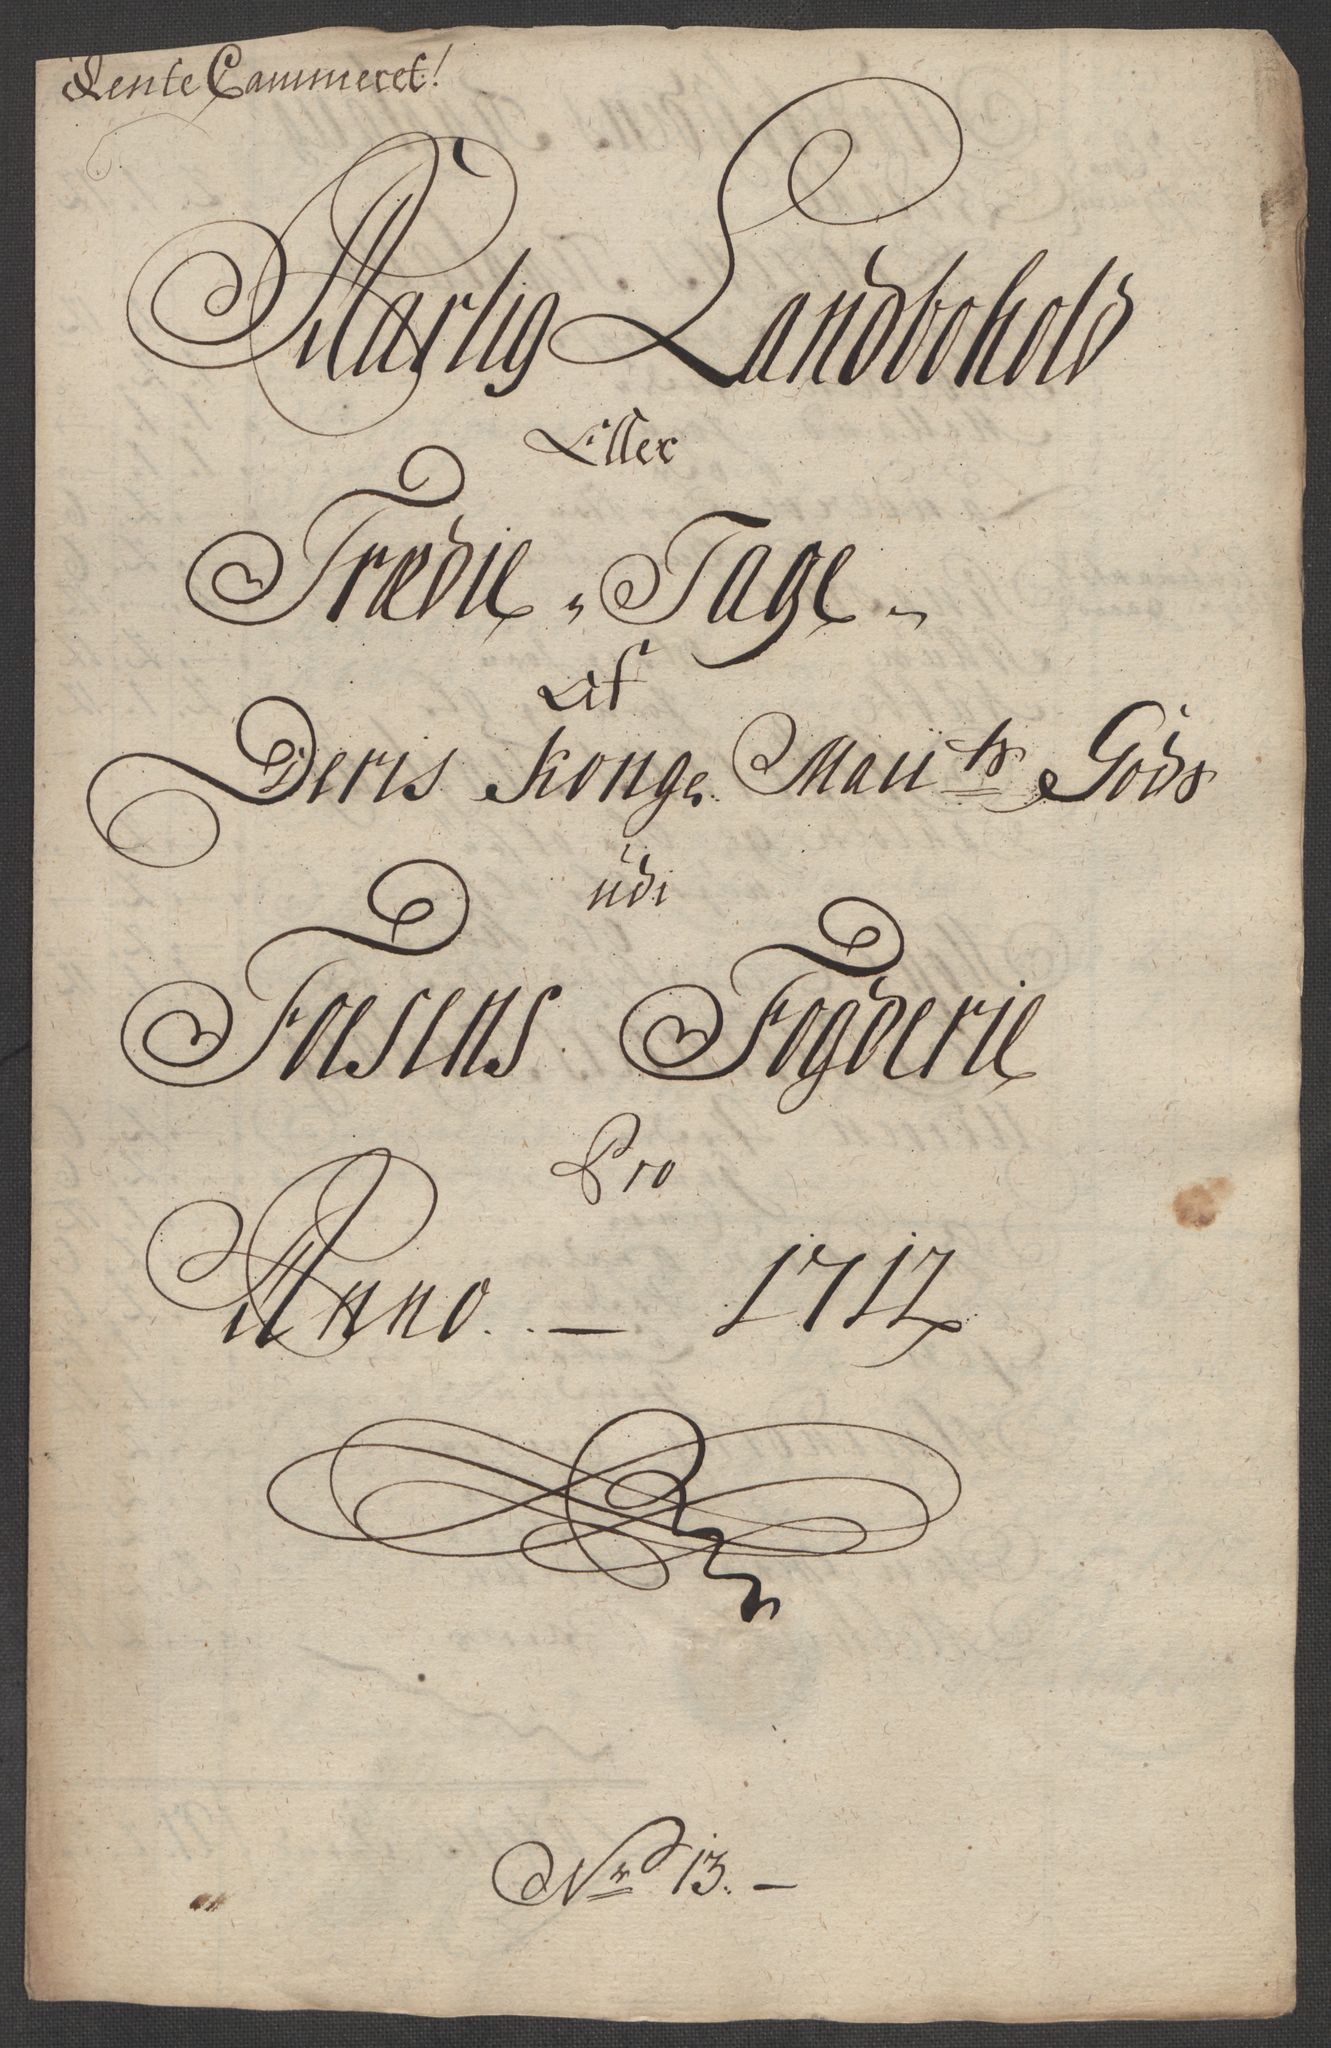 Rente Cammeret!
Aarlig Landbohold
Eller
Trædie, Tage
Af
Deris Konge. Maii:ts Gods
udi
Foesens Fogderie
Pro
Anno 1712
No 13.